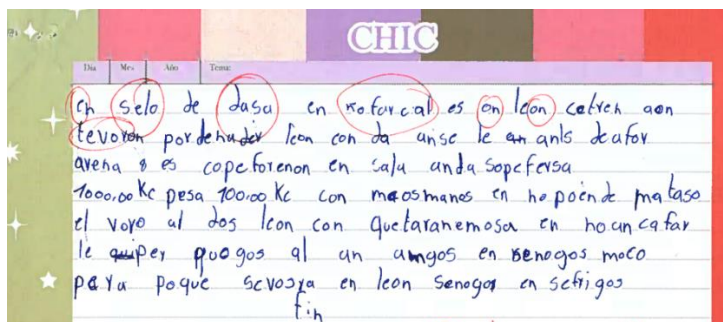 CHIC
Día Mes Año Tema:
En selo de dasa en notarcial es on leon catren aon
tevoron pordehuder leon con da anse le en anls deafor
avena es copeforenon en sala anda sopefersa
1000,00 Kc pesa 100,00 Kc con maosmanos en ho poende mataso
el voro al dos leon con quetaranemosa en ho un cafar
le per puogos al un amgos en senogos moco
para poque sevosra en leon senogos en sefrigos
fin